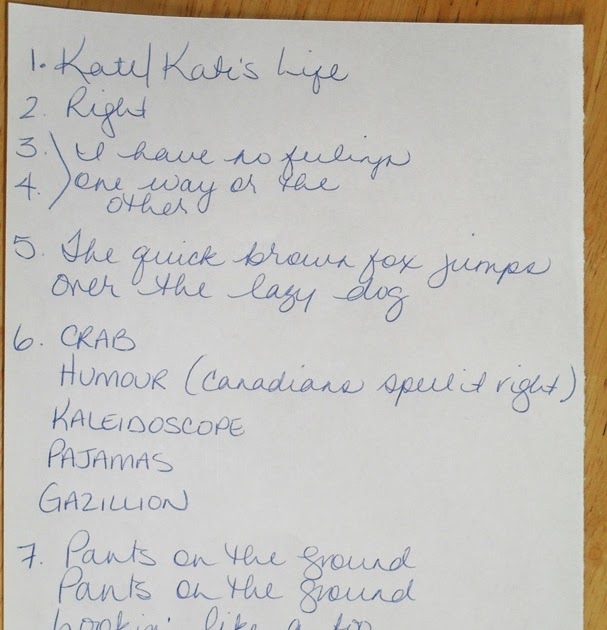 1. Kate/Kate's Life
2. Right
3. I have no feelings
4. one way or the
other
5. The quick brown fox jumps
over the lazy dog
6. CRAB
HUMOUR (Canadians spell it right)
KALEIDOSCOPE
PAJAMAS
GAZILLION
7. Pants on the ground
Pants on the ground
Lookin' like a foo